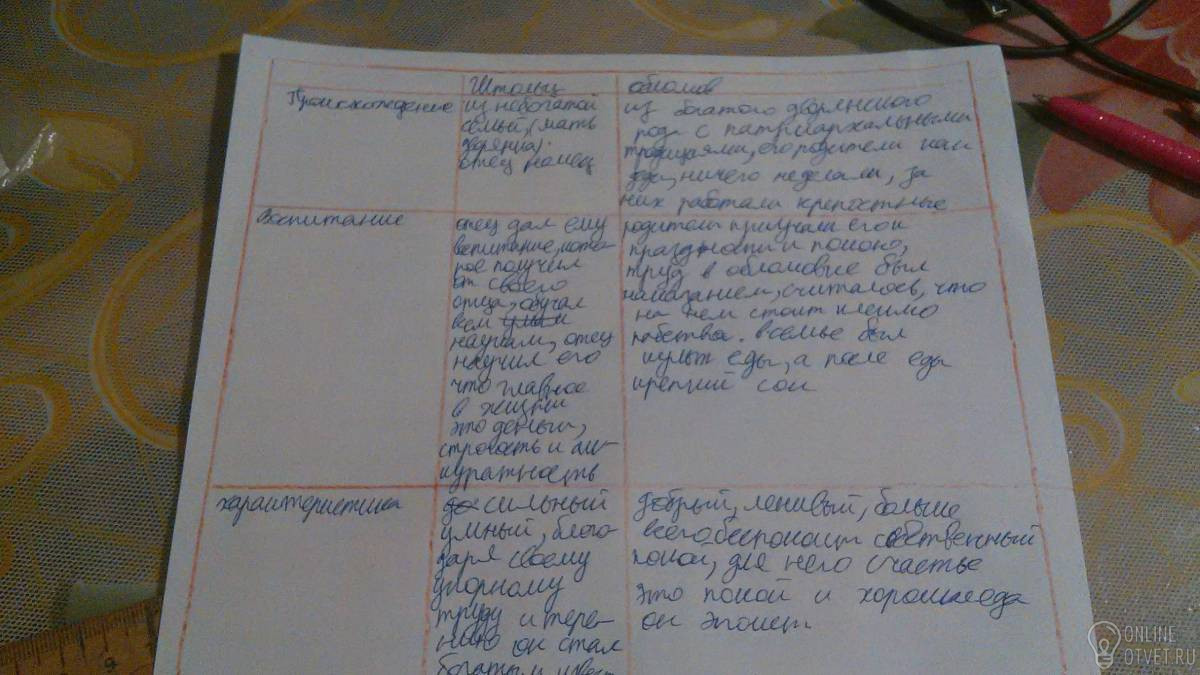 Штольц
обломов
Происхождение
из небогатой
семьи, (мать
дворянка).
отец немец
из богатого дворянского
рода с патриархальными
традициями, его родители как
ничего неделали, за
них работали крепостные
Воспитание
отец дал ему
воспитание, кото-
рое получил
от своего
отца, обучал
всем
наукам, отец
научил его
что главное
в жизни
это деньги,
строгость и ак-
куратность
родители приучали его к
праздности и покою,
труд в обломовке был
наказанием, считалось, что
на нем стоит клеймо
рабства. в семье был
культ еды, а после еды
крепкий сон
характеристика
сильный
умный, благо-
даря своему
упорному
труду и терпе-
нию он стал
богатым
добрый, ленивый, больше
всего беспокоит собственный
покой, для него счастье
это покой и хорошая еда
он эгоист
ONLINE
OTVET.RU